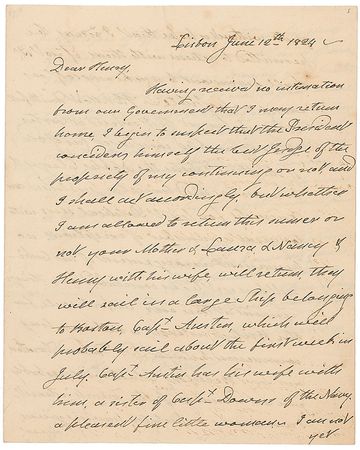 Lisbon June 12th 1824
Dear Henry,
Having received no intimation
from our Government that I may return
home I begin to suspect that the President
considers himself the best Judge of the
propriety of my continuing or not and
I shall act accordingly, but whether
I am allowed to return this summer or
not your Mother & Laura & Nancy &
Henry with his wife, will return, they
will sail in a large ship belonging
to Boston, Capt. Austin, which will
probably sail about the first week in
July. Capt. Austin has his wife with
him, a sister of Capt. Downs of the Navy,
a pleasant fine little woman. I am not
yet